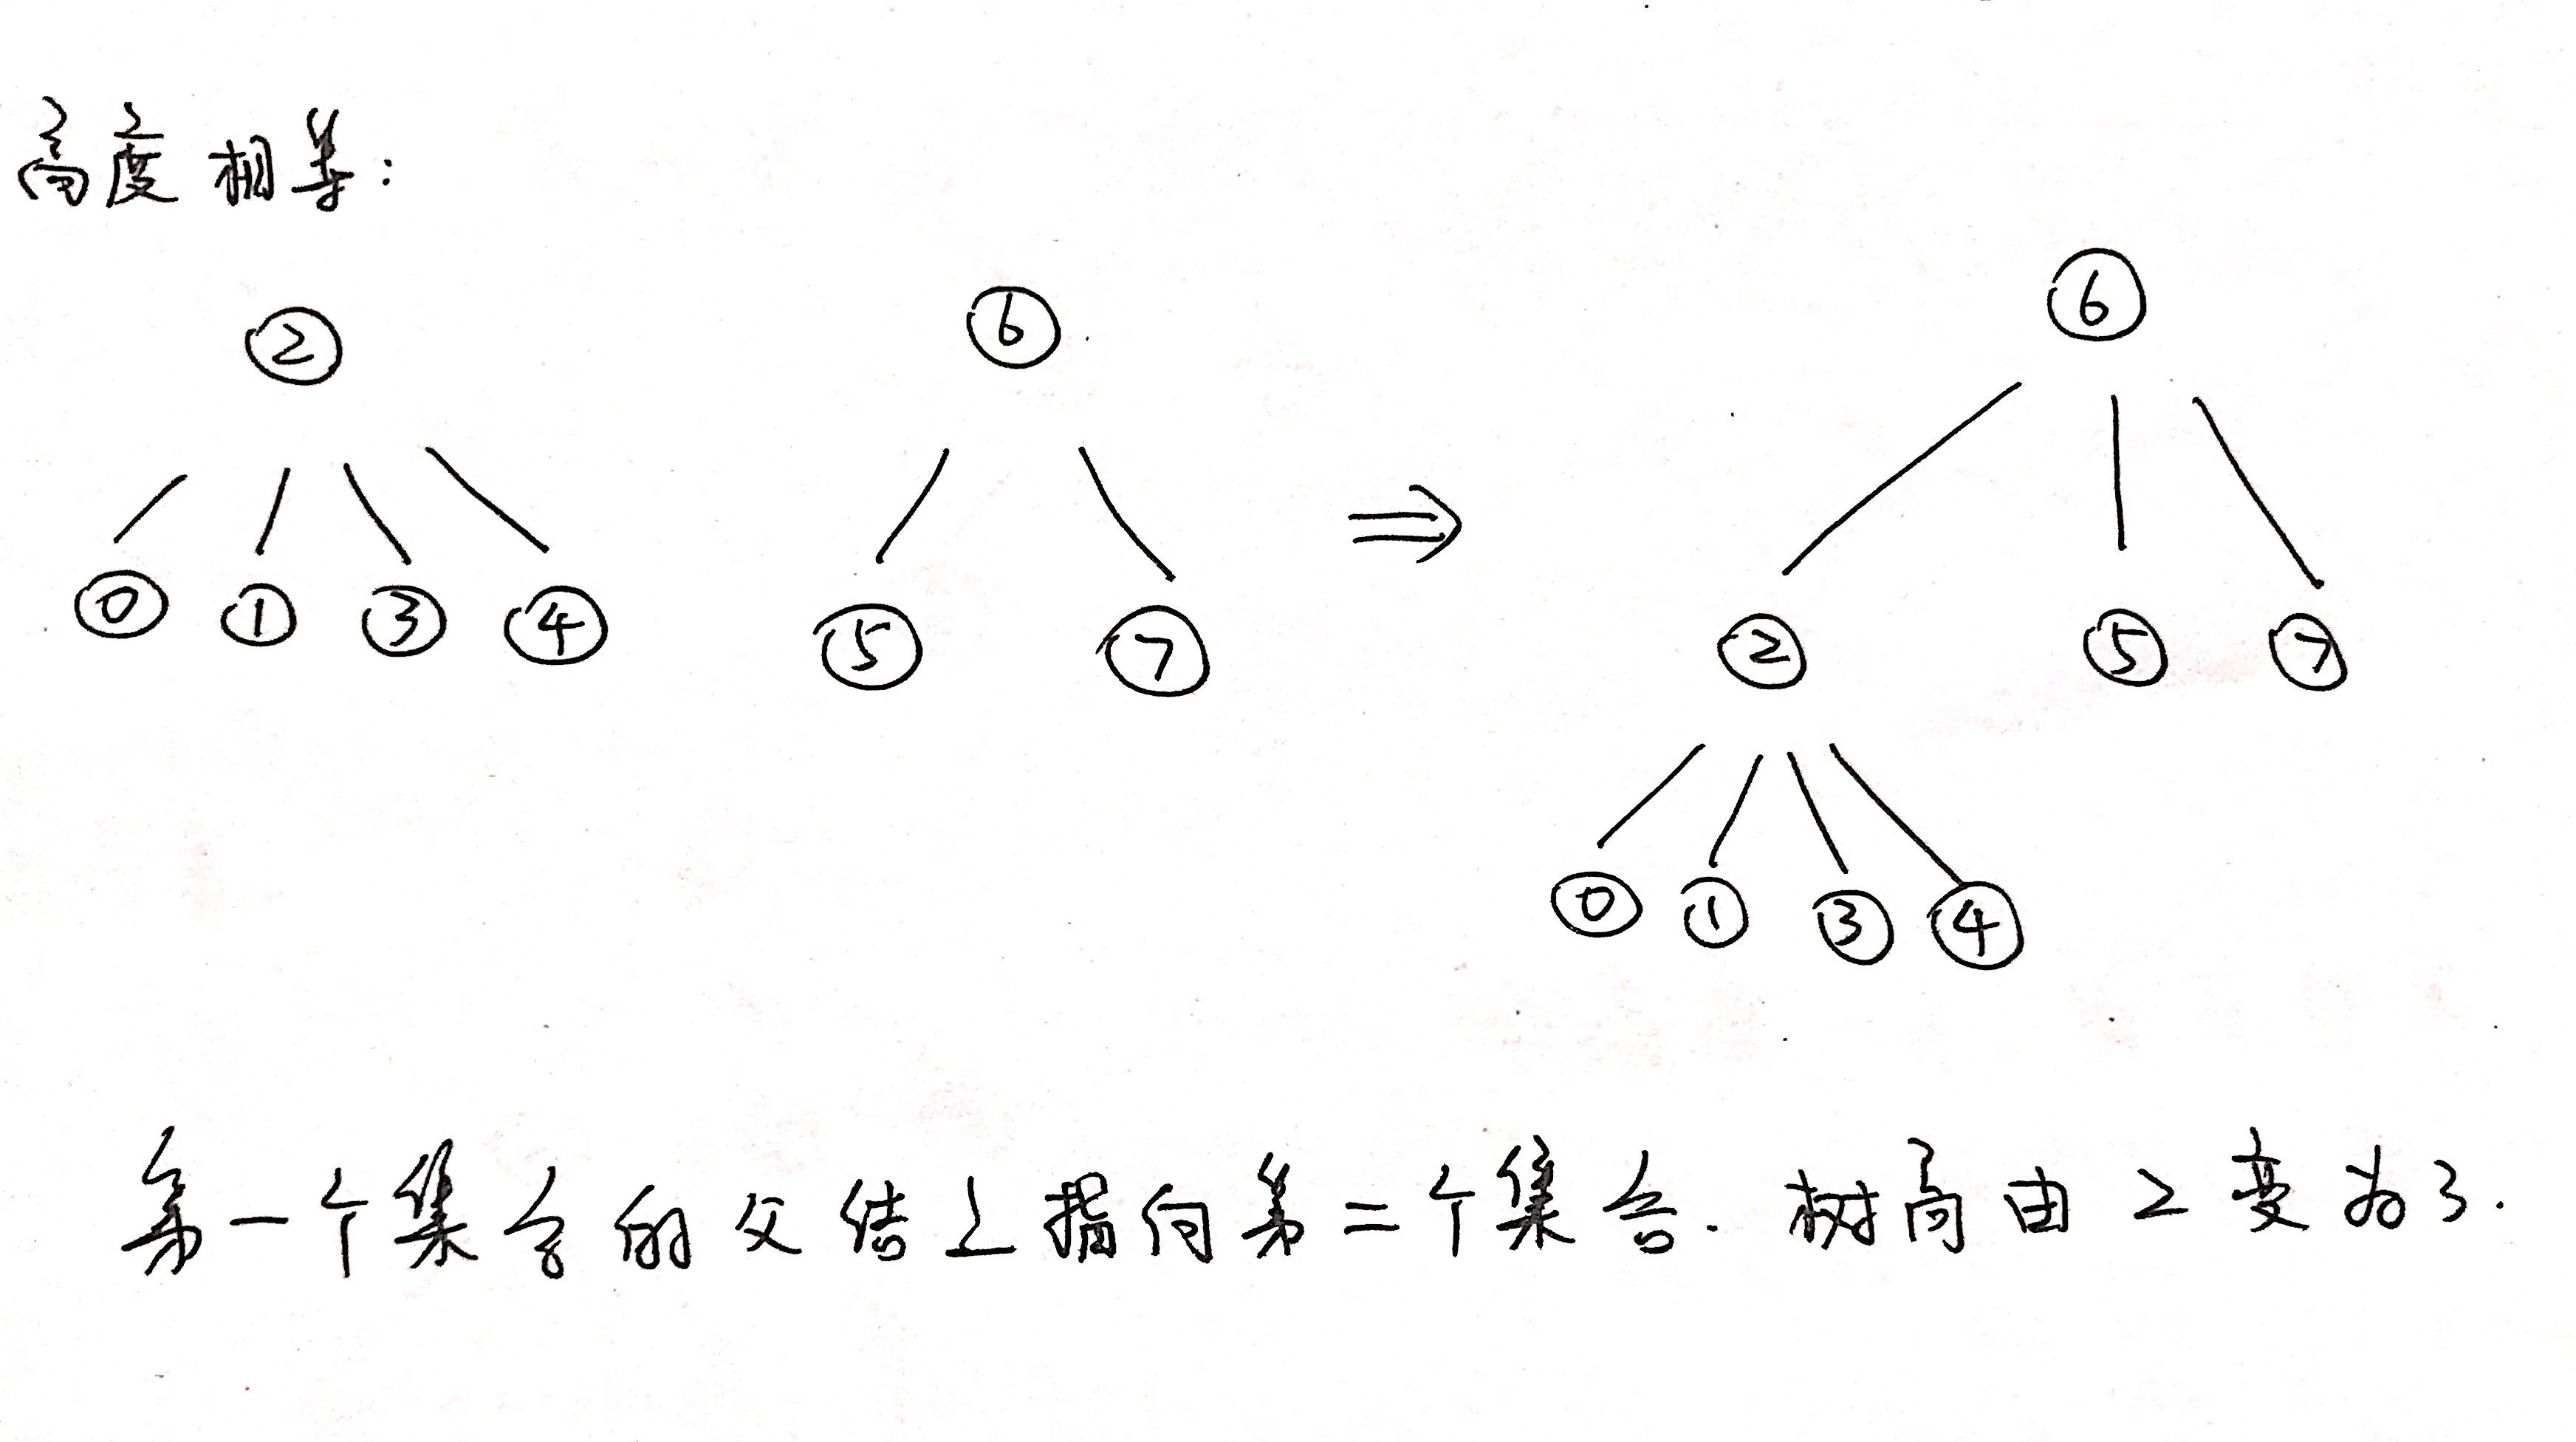 高度相等:
② ⑥ ⑥
⓪ ① ③ ④ ⑤ ⑦ ② ⑤ ⑦
⇒
⓪ ① ③ ④
第一个集合的父结上指向第二个集合. 树高由2变为3.